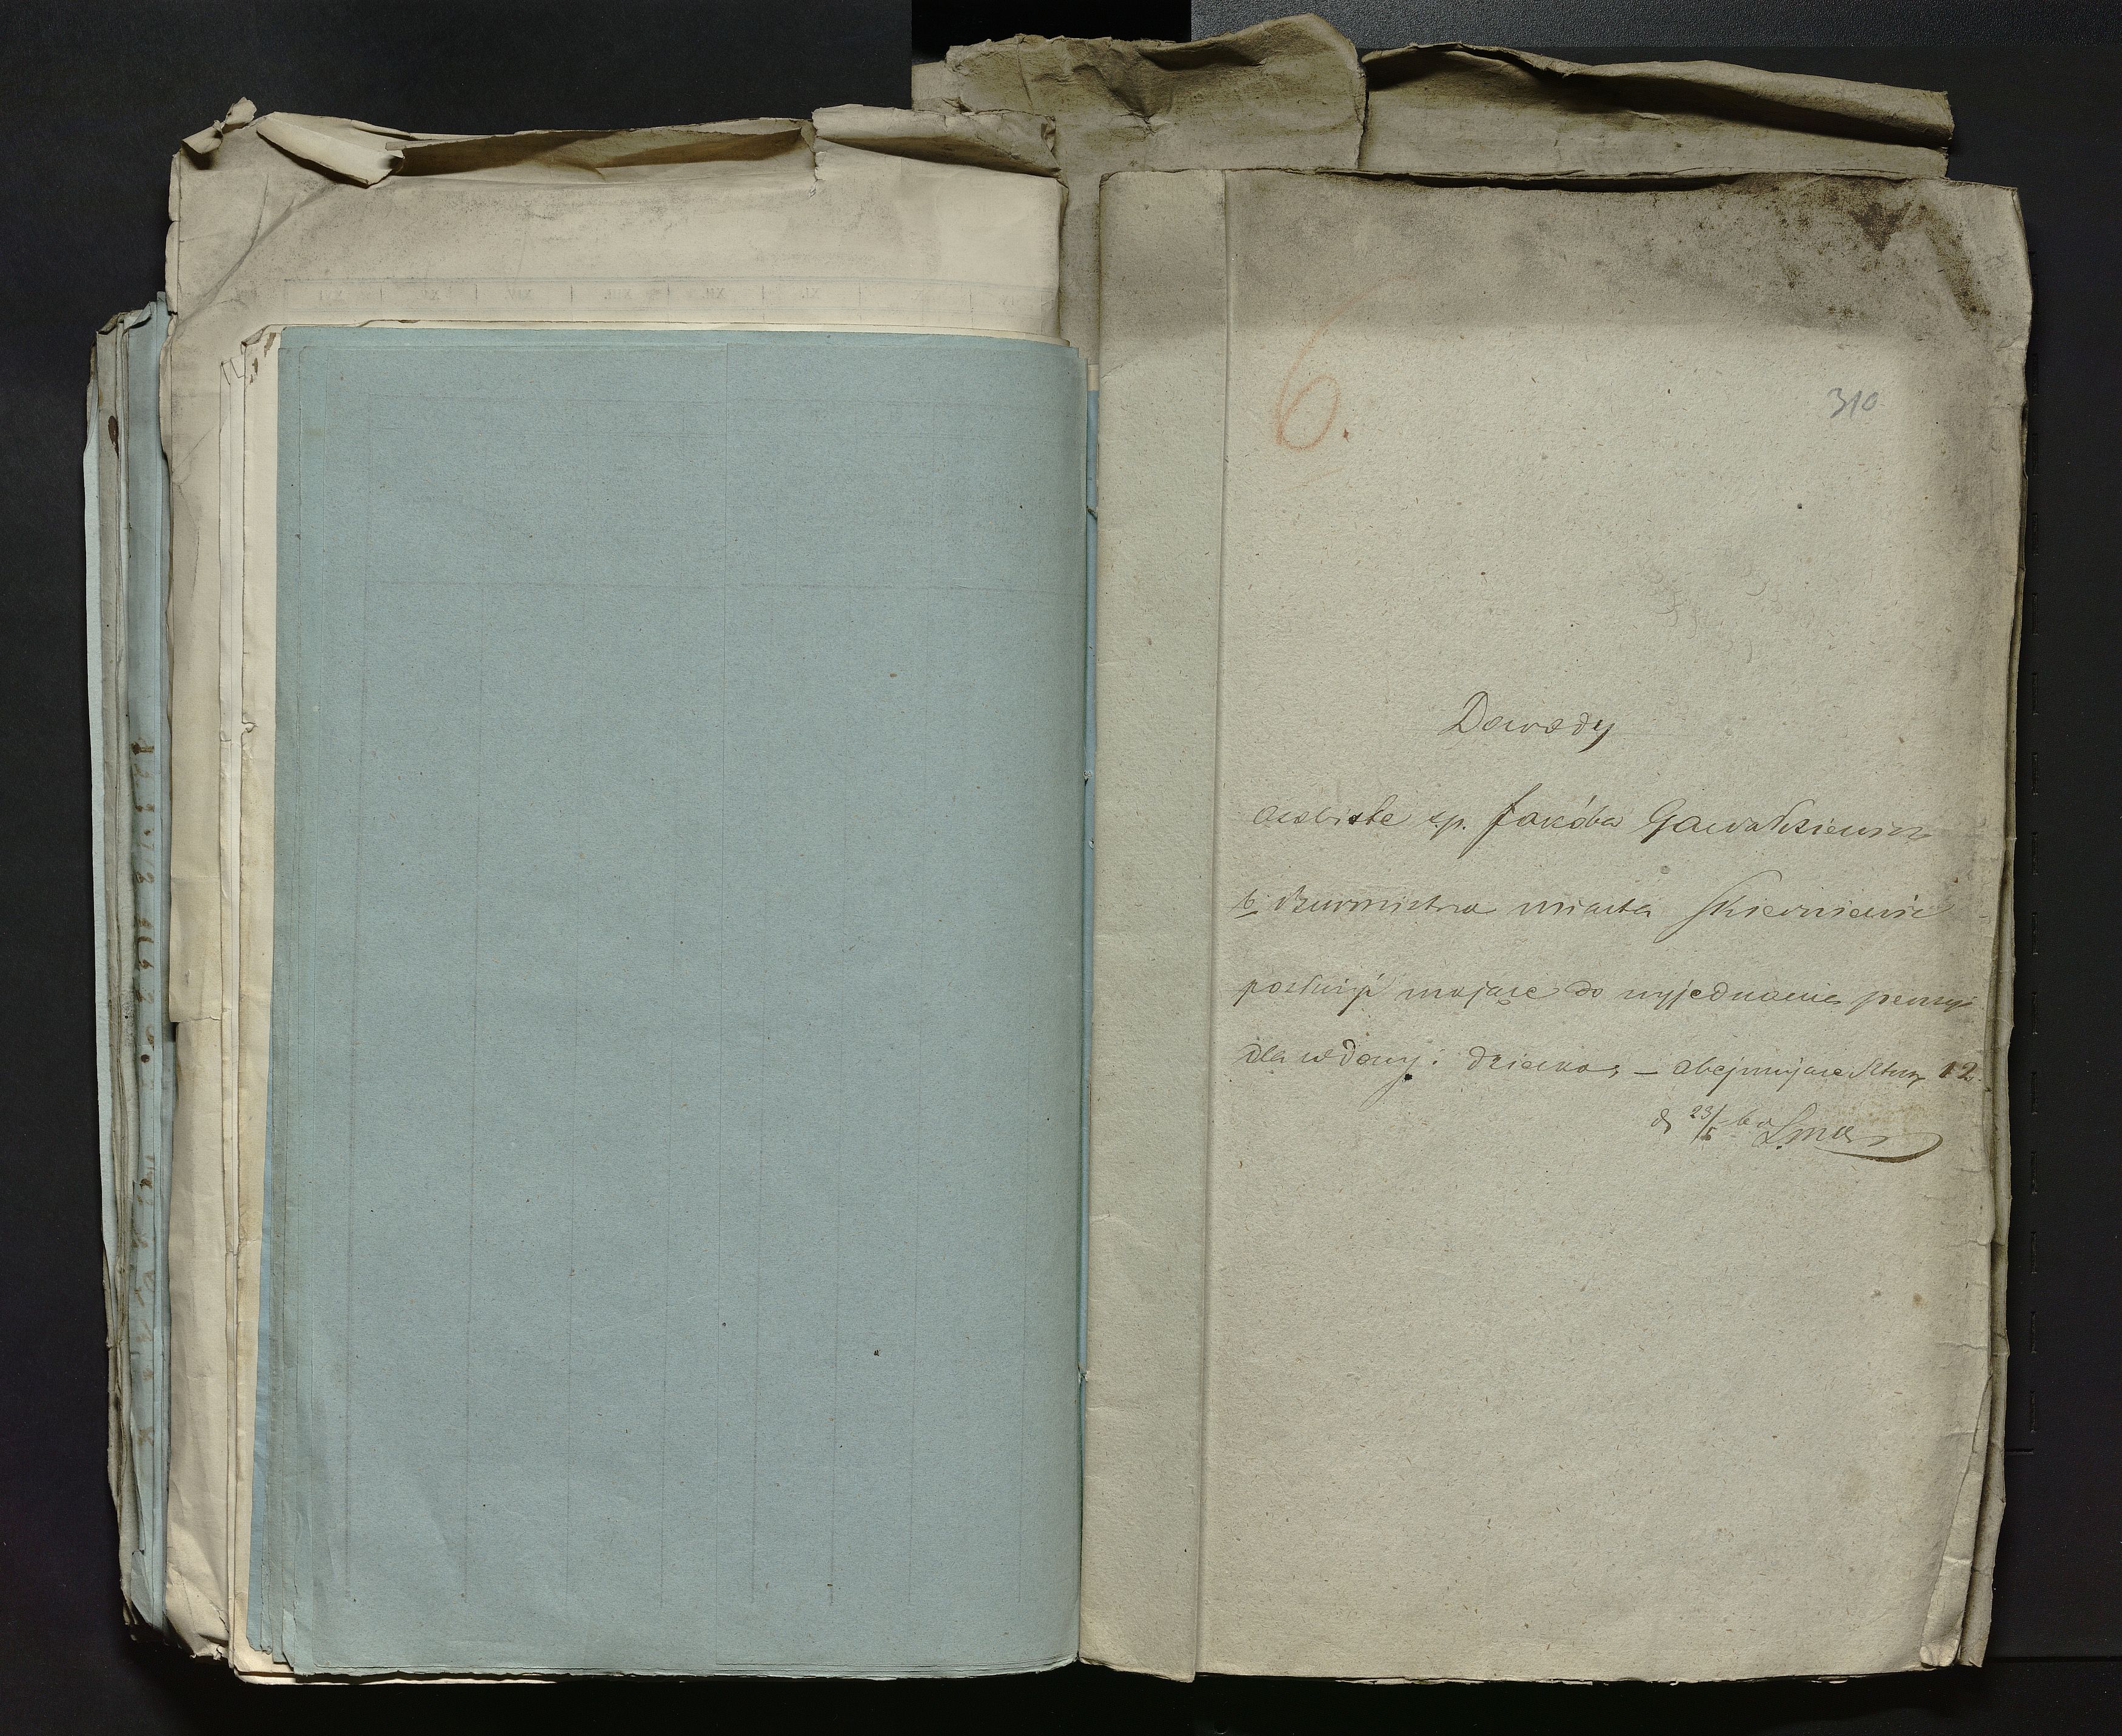 6.
310
Dowody
osobiste ś.p. Jakóba Gawałkiewicz
b. Burmistrza miasta Skierniewic
posłużyć mające do wyjednania pensyi
dla wdowy i dziecka, – obejmujące sztuk 12.
d 23/5